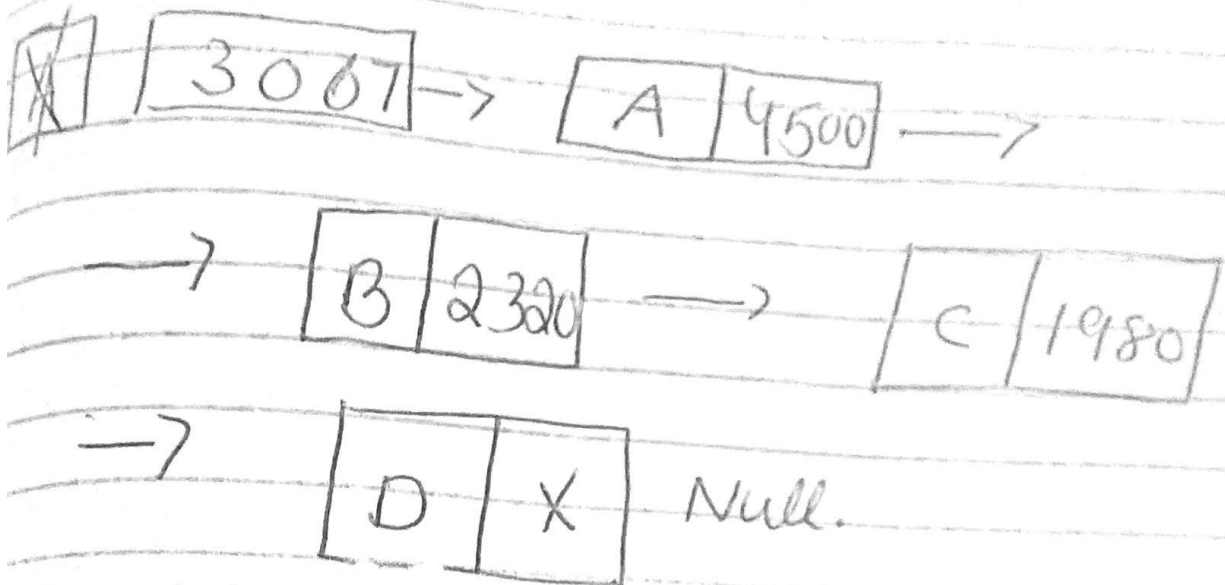 3067 → A 4500 →
→ B 2320 → C 1980
→ D X Null.